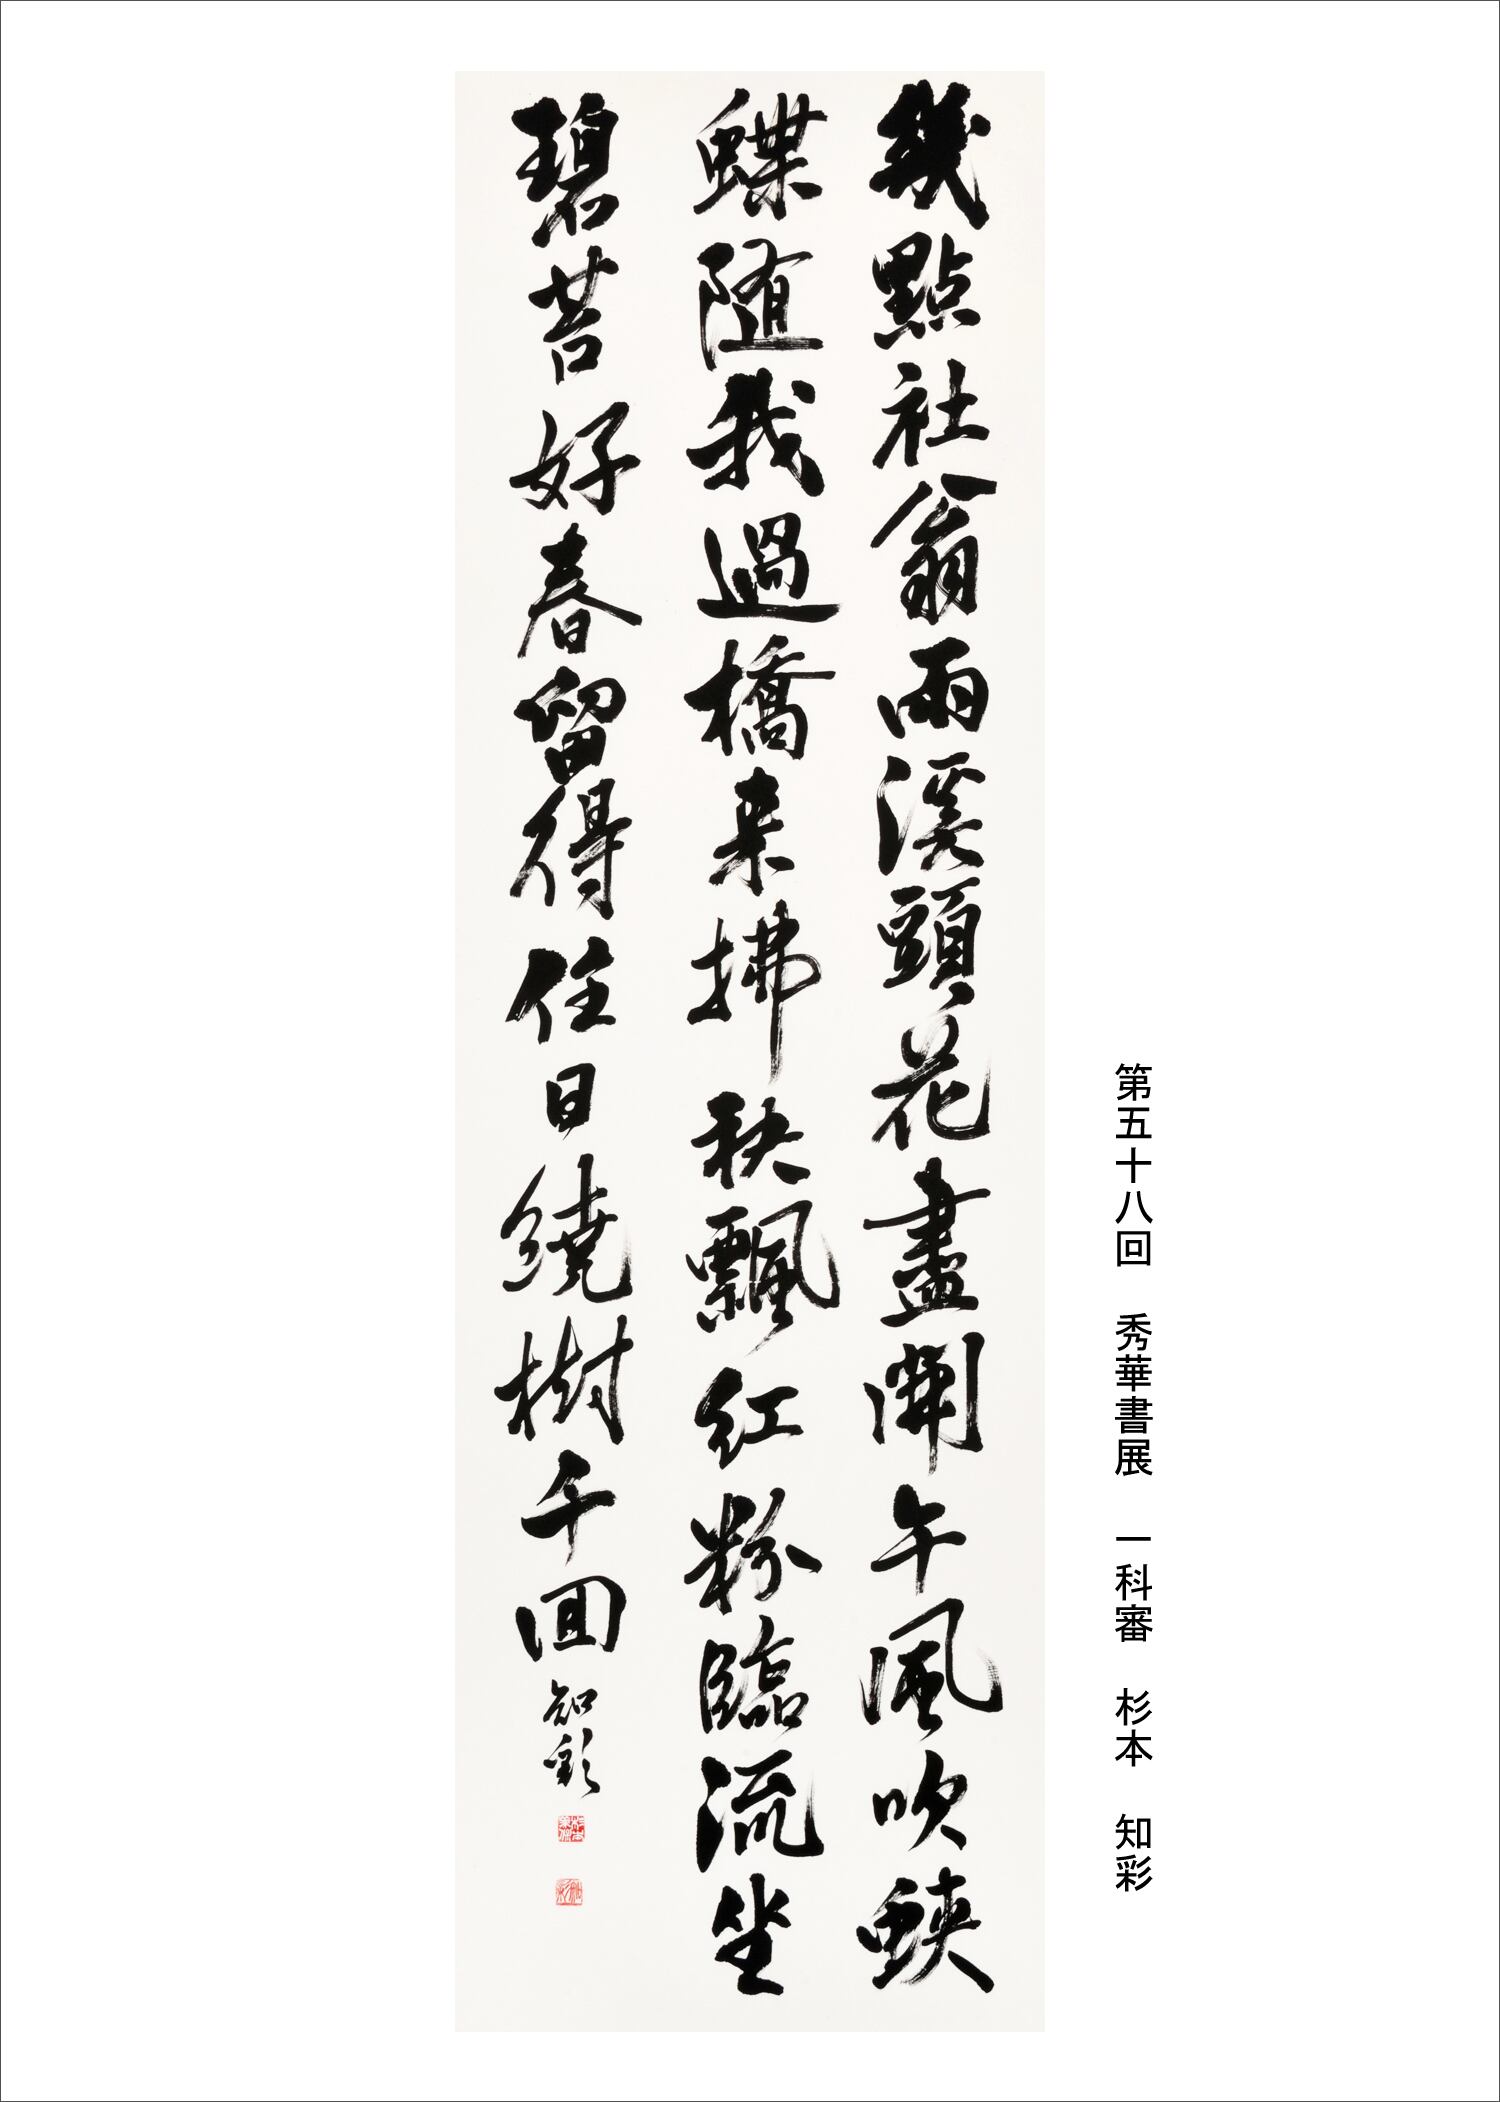 幾點社翁雨溪頭花盡開午風吹蛺
蝶随我過橋来拂秧飄紅粉臨流坐
碧苔好春留得住日繞樹千回
知彩
第五十八回 秀華書展 一科審 杉本 知彩